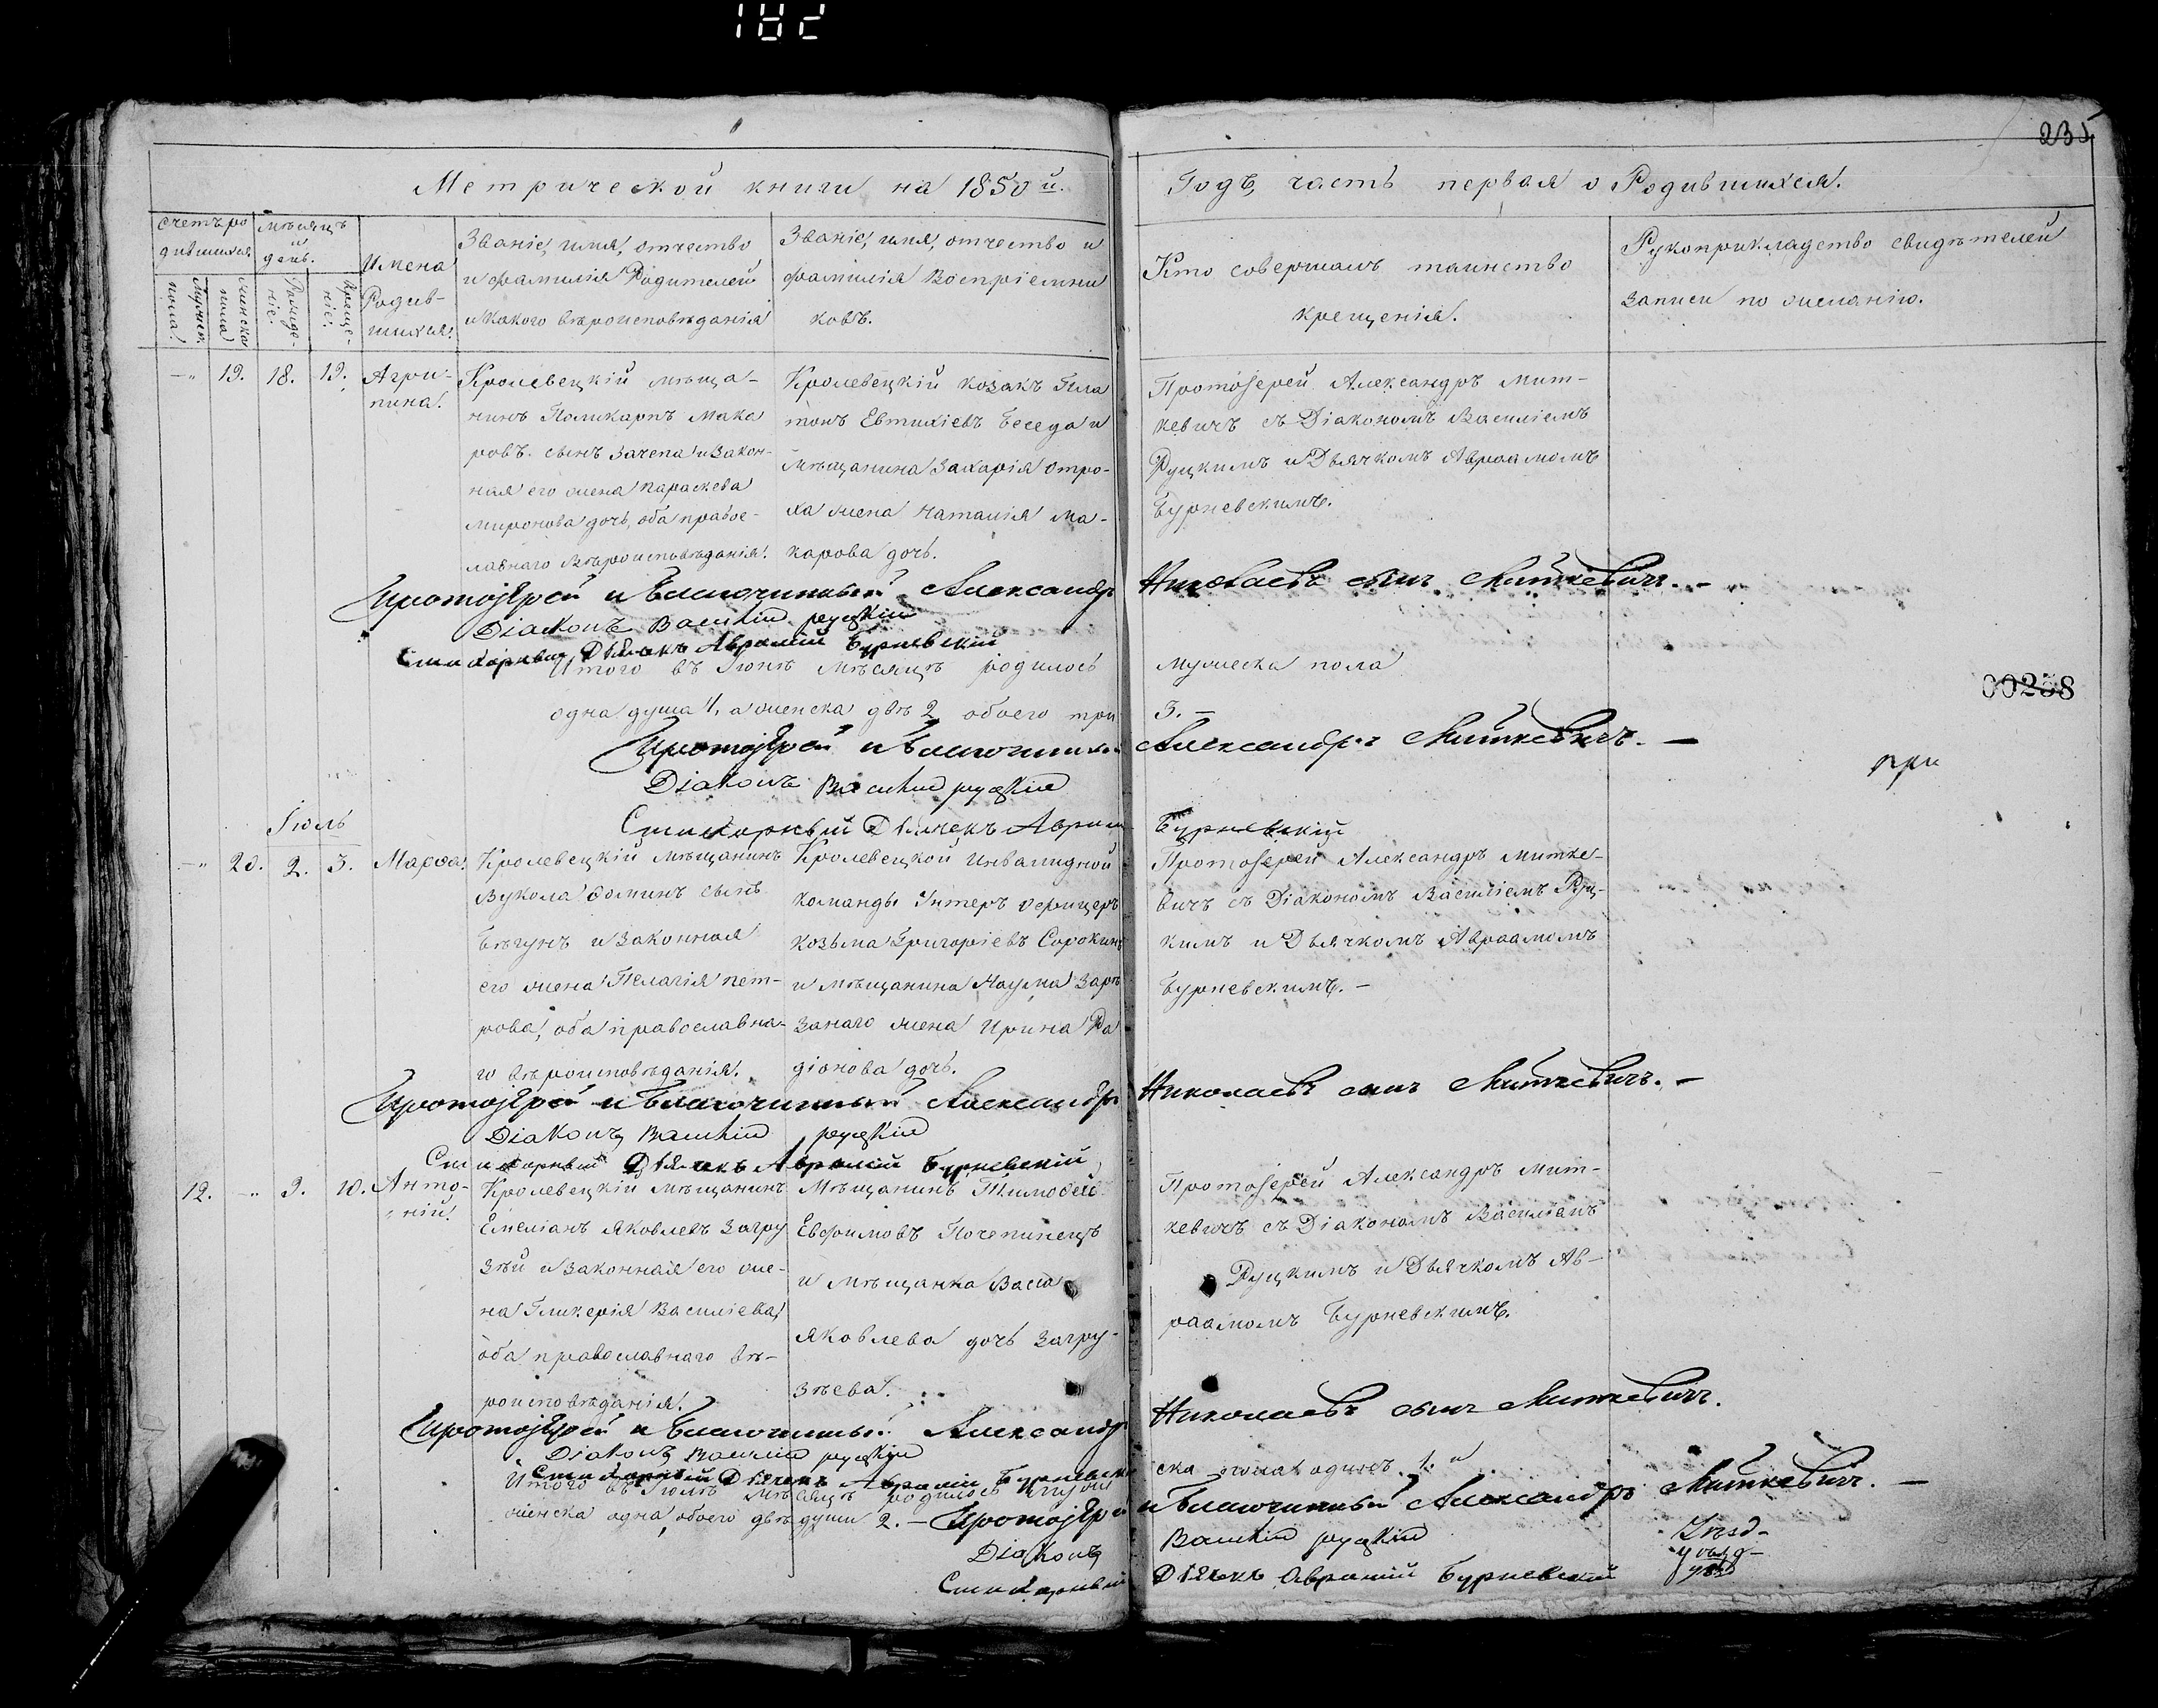 182
235
Метрической книги на 1850й.
Годъ, часть первая о Родившихся.
счетъ ро
дившихся
мѣсяцъ
и
день.
Мужеск.
пола.
женска
пола
Рожде-
ніе.
Креще-
ніе.
Имена
Родив-
шихся.
Званіе, имя, отчество
и фамилія Родителей
и какого вѣроисповѣданія
Званіе, имя, отчество и
фамилія Воспріемни
ковъ.
Кто совершалъ таинство
крещенія.
Рукоприкладство свидѣтелей
записи по желанію.
—„ 19. 18. 19.
Агри-
пина.
Кролевецкій мѣща-
нинъ Поликарпъ Мака
ровъ сынъ Зачепа и Закон-
ная его жена Параскева
Миронова дочь, оба правос-
лавнаго Вѣроисповѣданія.
Кролевецкій козакъ Пла
тонъ Евтихіевъ Беседа и
мѣщанина Захарія Отро-
ха жена Наталія Ма-
карова дочь.
Протоіерей Александръ Мит-
кевичъ съ Діакономъ Василіемъ
Руцкимъ и Дьячкомъ Авраамомъ
Бурневскимъ.
Протоіерей и Благочинный Александръ Николаевъ сынъ Миткевичъ. —
Діаконъ Василій Руцкій
Стихарный Дьячекъ Аврамій Бурневскій
Итого въ Іюнѣ мѣсяцѣ родилось мужеска пола
одна душа 1, а женска двѣ 2 обоего три 3. —
00258
Протоіерей и Благочинный Александръ Миткевичъ. —
при
Діаконъ Василій Руцкій
Стихарный Дьячекъ Аврам Бурневскій
Іюль
—„ 20. 2. 3.
Марѳа.
Кролевецкій мѣщанинъ
Вукола Ѳоминъ сынъ
Бѣгунъ и Законная
его жена Пелагія Пет-
рова, оба православна-
го вѣроисповѣданія.
Кролевецкой Инвалидной
команды Унтеръ офицеръ
Козьма Григоріевъ Сорокинъ
и мѣщанина Наума Зарѣ
занаго жена Ирина Ра
діонова дочь.
Протоіерей Александръ Митке-
вичъ съ Діакономъ Василіемъ Руц-
кимъ и Дьячкомъ Авраамомъ
Бурневскимъ. —
Протоіерей и Благочинный Александръ Николаевъ сынъ Миткевичъ. —
Діаконъ Василій Руцкій
Стихарный Дьячекъ Аврамій Бурневскій
12. —„ 9. 10.
Анто-
ній.
Кролевецкій мѣщанинъ
Емеліанъ Яковлевъ Загру
зѣй и Законная его же-
на Гликерія Василіева,
оба православнаго вѣ-
роисповѣданія.
Мѣщанинъ Тимоѳей
Евфимовъ Почепинецъ
и мѣщанка Васса
Яковлева дочь Загру-
зѣева.
Протоіерей Александръ Мит-
кевичъ съ Діакономъ Василіемъ
Руцкимъ и Дьячкомъ Ав-
раамомъ Бурневскимъ.
Протоіерей и Благочинный Александръ Николаевъ сынъ Миткевичъ.
Діаконъ Василій Руцкій
Стихарный Дьячекъ Аврамій Бурневск
Итого въ Іюлѣ мѣсяцѣ родилось мужеска пола одинъ 1. и
женска одна, обоего двѣ души 2. — Протоіерей и Благочинный Александръ Миткевичъ. —
Діаконъ Василій Руцкій
Стихарный Дьячекъ Аврамій Бурневский